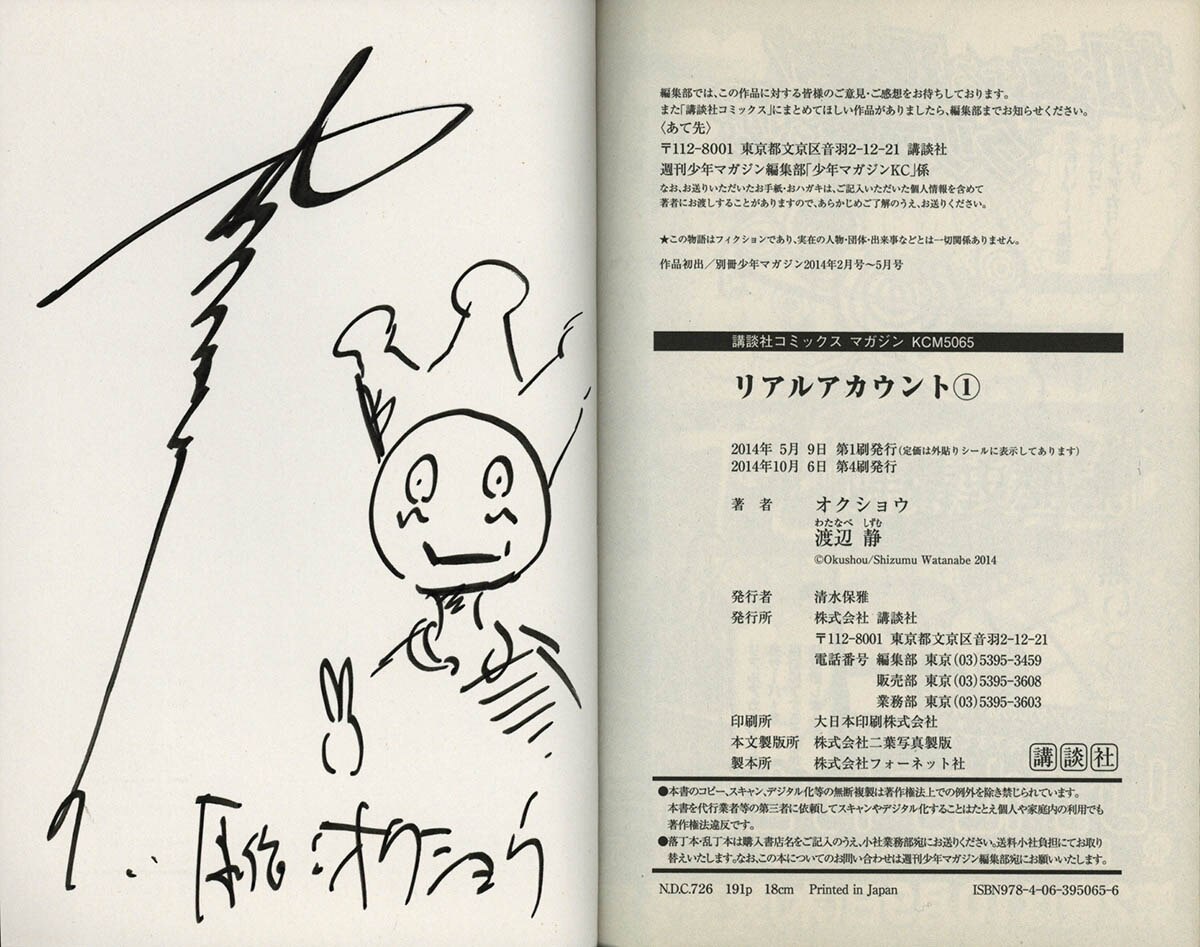 原作:オクショウ
編集部では、この作品に対する皆様のご意見・ご感想をお待ちしております。
また「講談社コミックス」にまとめてほしい作品がありましたら、編集部までお知らせください。
〈あて先〉
〒112-8001 東京都文京区音羽2-12-21 講談社
週刊少年マガジン編集部「少年マガジンKC」係
なお、お送りいただいたお手紙・おハガキは、ご記入いただいた個人情報を含めて
著者にお渡しすることがありますので、あらかじめご了解のうえ、お送りください。
★この物語はフィクションであり、実在の人物・団体・出来事などとは一切関係ありません。
作品初出/別冊少年マガジン2014年2月号〜5月号
講談社コミックス マガジン KCM5065
リアルアカウント①
2014年 5月 9日 第1刷発行(定価は外貼りシールに表示してあります)
2014年10月 6日 第4刷発行
著 者 オクショウ
わたなべ しずむ
渡辺 静
©Okushou/Shizumu Watanabe 2014
発行者 清水保雅
発行所 株式会社 講談社
〒112-8001 東京都文京区音羽2-12-21
電話番号 編集部 東京(03)5395-3459
販売部 東京(03)5395-3608
業務部 東京(03)5395-3603
印刷所 大日本印刷株式会社
本文製版所 株式会社二葉写真製版
製本所 株式会社フォーネット社
講談社
●本書のコピー、スキャン、デジタル化等の無断複製は著作権法上での例外を除き禁じられています。
本書を代行業者等の第三者に依頼してスキャンやデジタル化することはたとえ個人や家庭内の利用でも
著作権法違反です。
●落丁本・乱丁本は購入書店名をご記入のうえ、小社業務部宛にお送りください。送料小社負担にてお取り
替えいたします。なお、この本についてのお問い合わせは週刊少年マガジン編集部宛にお願いいたします。
N.D.C.726 191p 18cm Printed in Japan ISBN978-4-06-395065-6